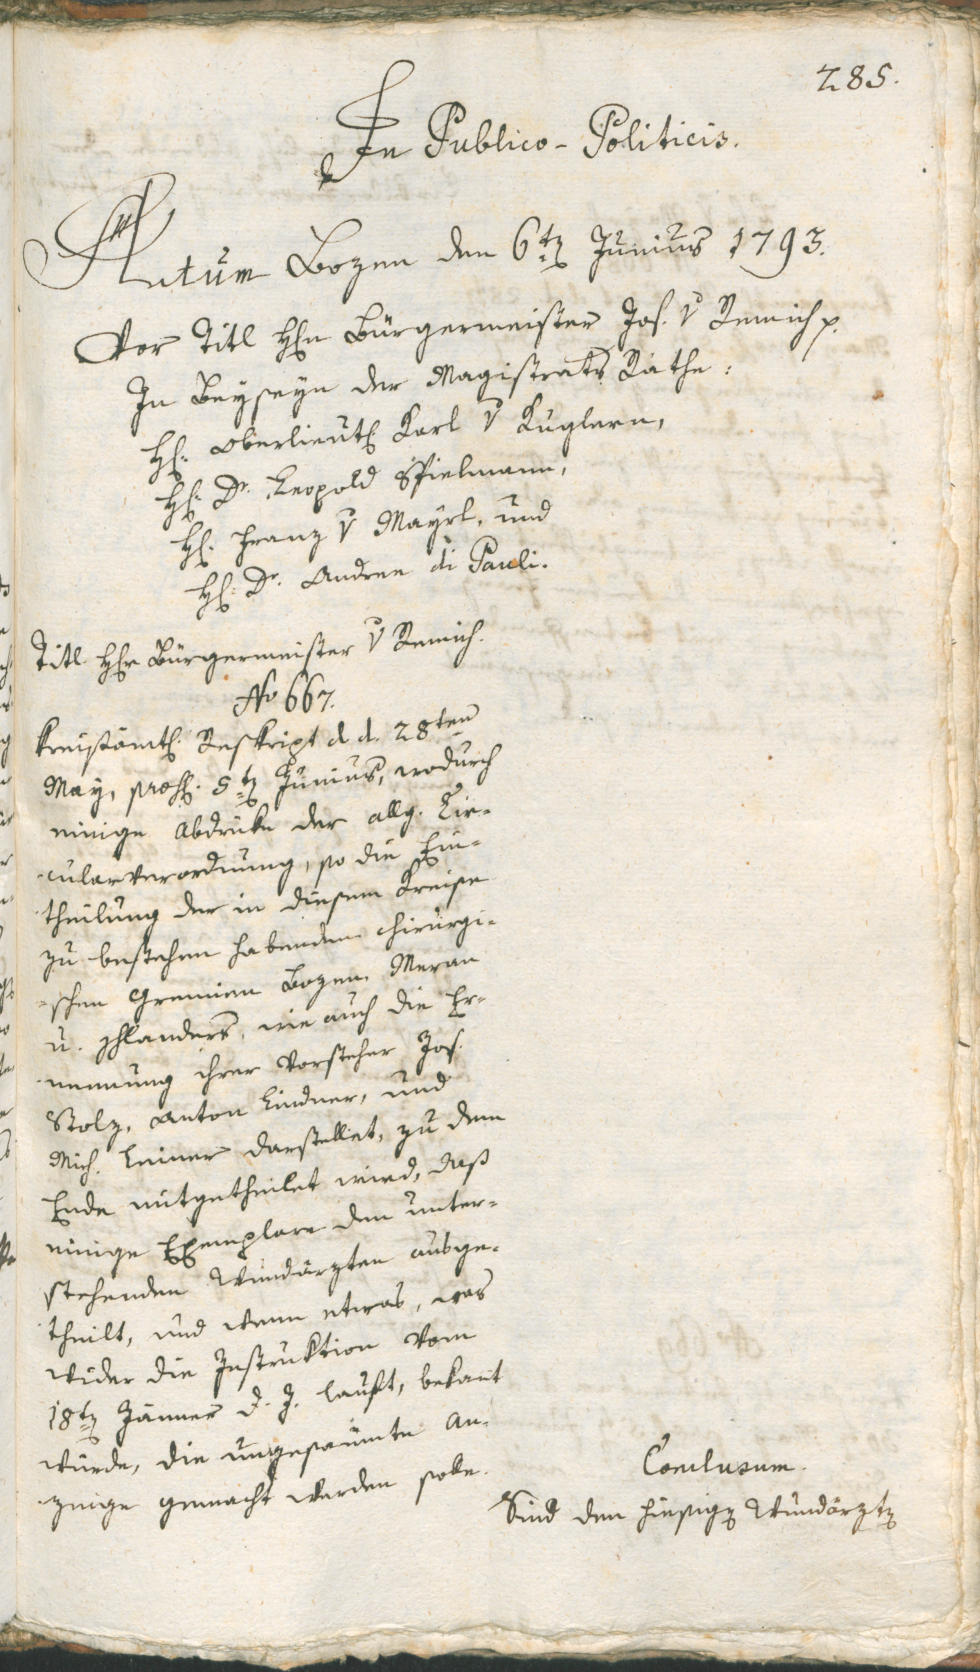 285.
In Publico-Politicis.
Actum Bozen den 6ten Junius 1793.
Vor Titl Hhn Bürgermeister Jos. v Remich p.
In Beyseyn der Magistrats Räthe:
H: Oberlieut: Karl v Kuglern,
H: Dr. Leopold Spielmann,
H: Franz v Mayrl, und
H: Dr. Andree di Pauli.
Titl Hhr Bürgermeister v Remich.
No 667.
Kreisämtl. Reskript d. d. 28ten
May, präs. 5ten Junius, wodurch
einige Abdrüke der allg. Cir-
cularverordnung, so die Ein-
theilung der in diesem Kreise
zu bestehen habenden chirurgi-
schen Gremien Bozen, Meran
u. Schlanders, wie auch die Er-
nennung ihrer Vorsteher Jos.
Stolz, Anton Lindner, und
Mich. Leiner darstellet, zu dem
Ende mitgetheilet wird, daß
einige Exemplare den unter-
stehenden Wundärzten ausge-
theilt, und wenn etwas, was
wider die Instruktion vom
18ten Jänner d. J. lauft, bekant
würde, die ungesäumte An-
zeige gemacht werden solle.
Conclusum.
Sind den hiesigen Wundärzten